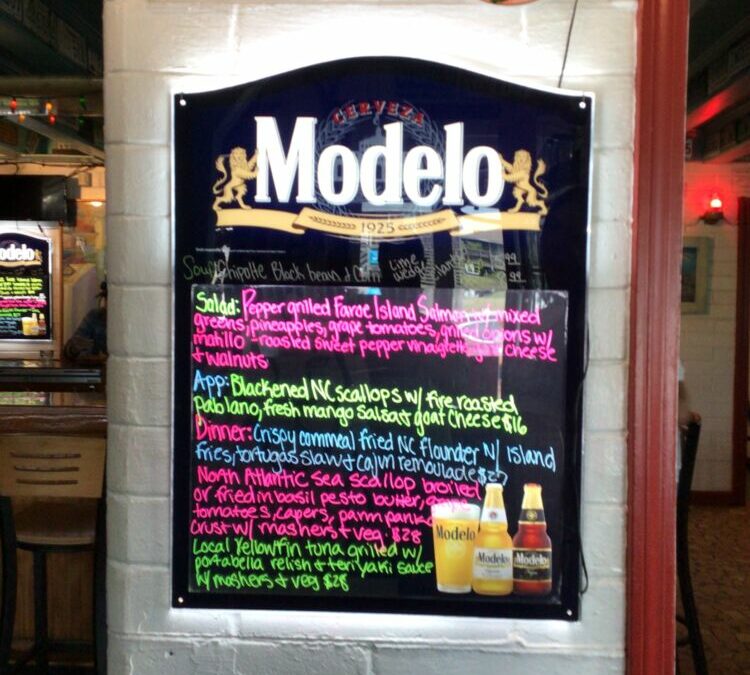 CERVEZA
Modelo
1925
Soup: Chipotle Black bean & Corn Lime
wedge
Salad: Pepper grilled Faroe Island Salmon mixed
greens, pineapples, grape tomatoes, grilled onions w/
roasted sweet pepper vinaigrette cheese
& walnuts
App: Blackened NC scallops w/ fire roasted
pablano, fresh mango salsa & goat cheese $16
Dinner: Crispy cornmeal fried NC flounder w/ island
fries, tortugas slaw & cajun remoulade
North Atlantic sea scallop broiled
or fried in basil pesto butter, grape
tomatoes, capers, parm panko
crust w/ mashers & veg $28
Local Yellowfin tuna grilled w/
portabella relish & teriyaki sauce
w/ mashers & veg $28
Modelo
Modelo
MODELO
Modelo